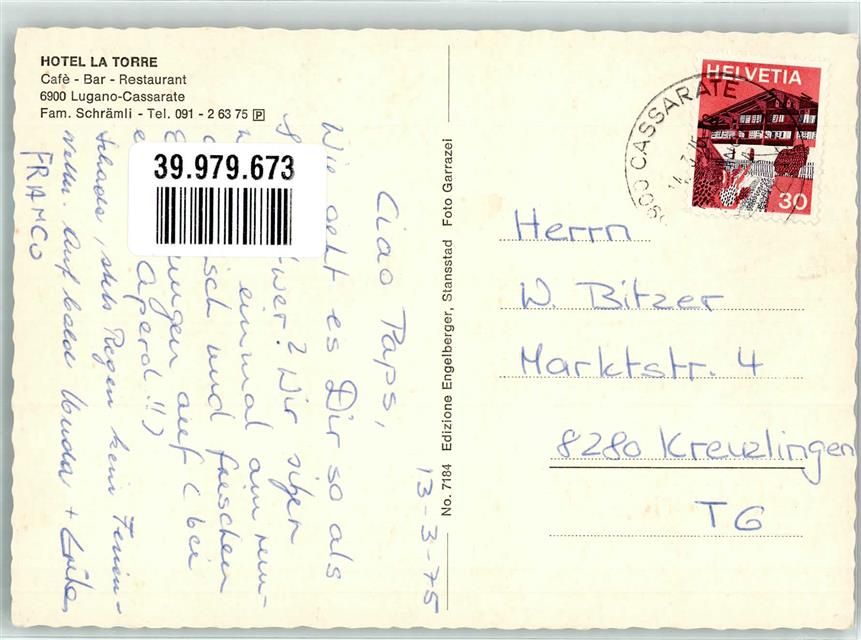 HOTEL LA TORRE
Cafè - Bar - Restaurant
6900 Lugano-Cassarate
Fam. Schrämli - Tel. 091 - 2 63 75 P
39.979.673
13-3-75
Ciao Paps,
Wie geht es Dir so als
wer? Wir sitzen
einmal am
isch und frischen
ungen auf (bei
Aperol!!)
Schade, stets Regen kein Ferien-
wetter. Auf bald
FRANCO
No. 7184 Edizione Engelberger, Stansstad Foto Garrazei
HELVETIA
30
6900 CASSARATE
14.3.75
Herrn
W. Bitzer
Marktstr. 4
8280 Kreuzlingen
TG